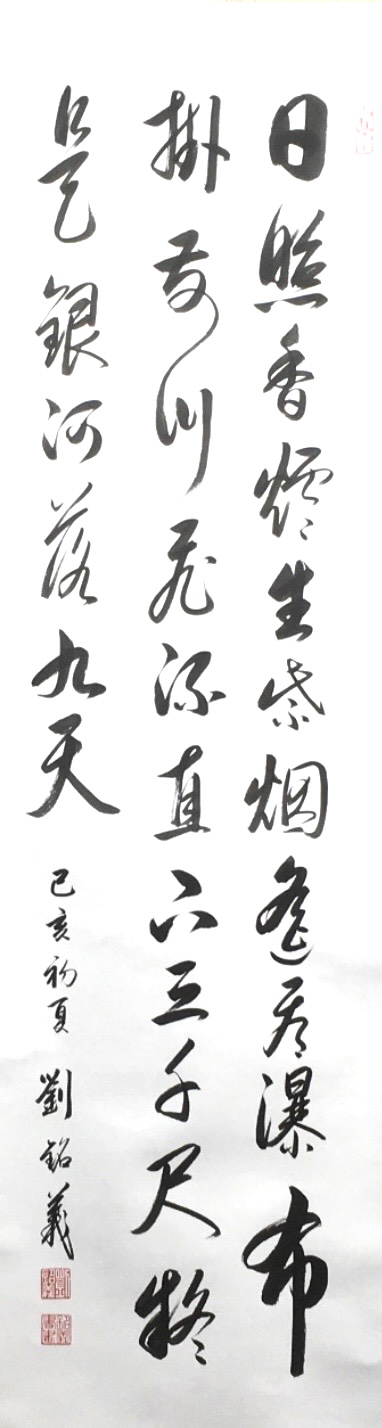 日照香爐生紫烟遙看瀑布
掛前川飛流直下三千尺疑
是銀河落九天 己亥初夏 劉銘義